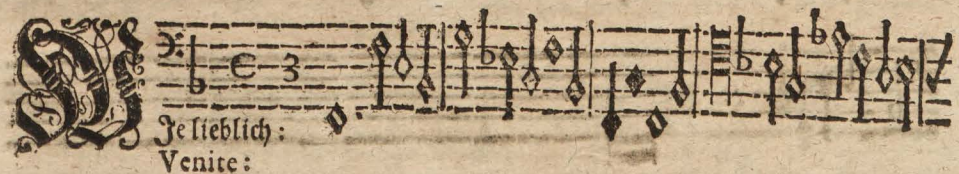 WJe lieblich :
Venite :